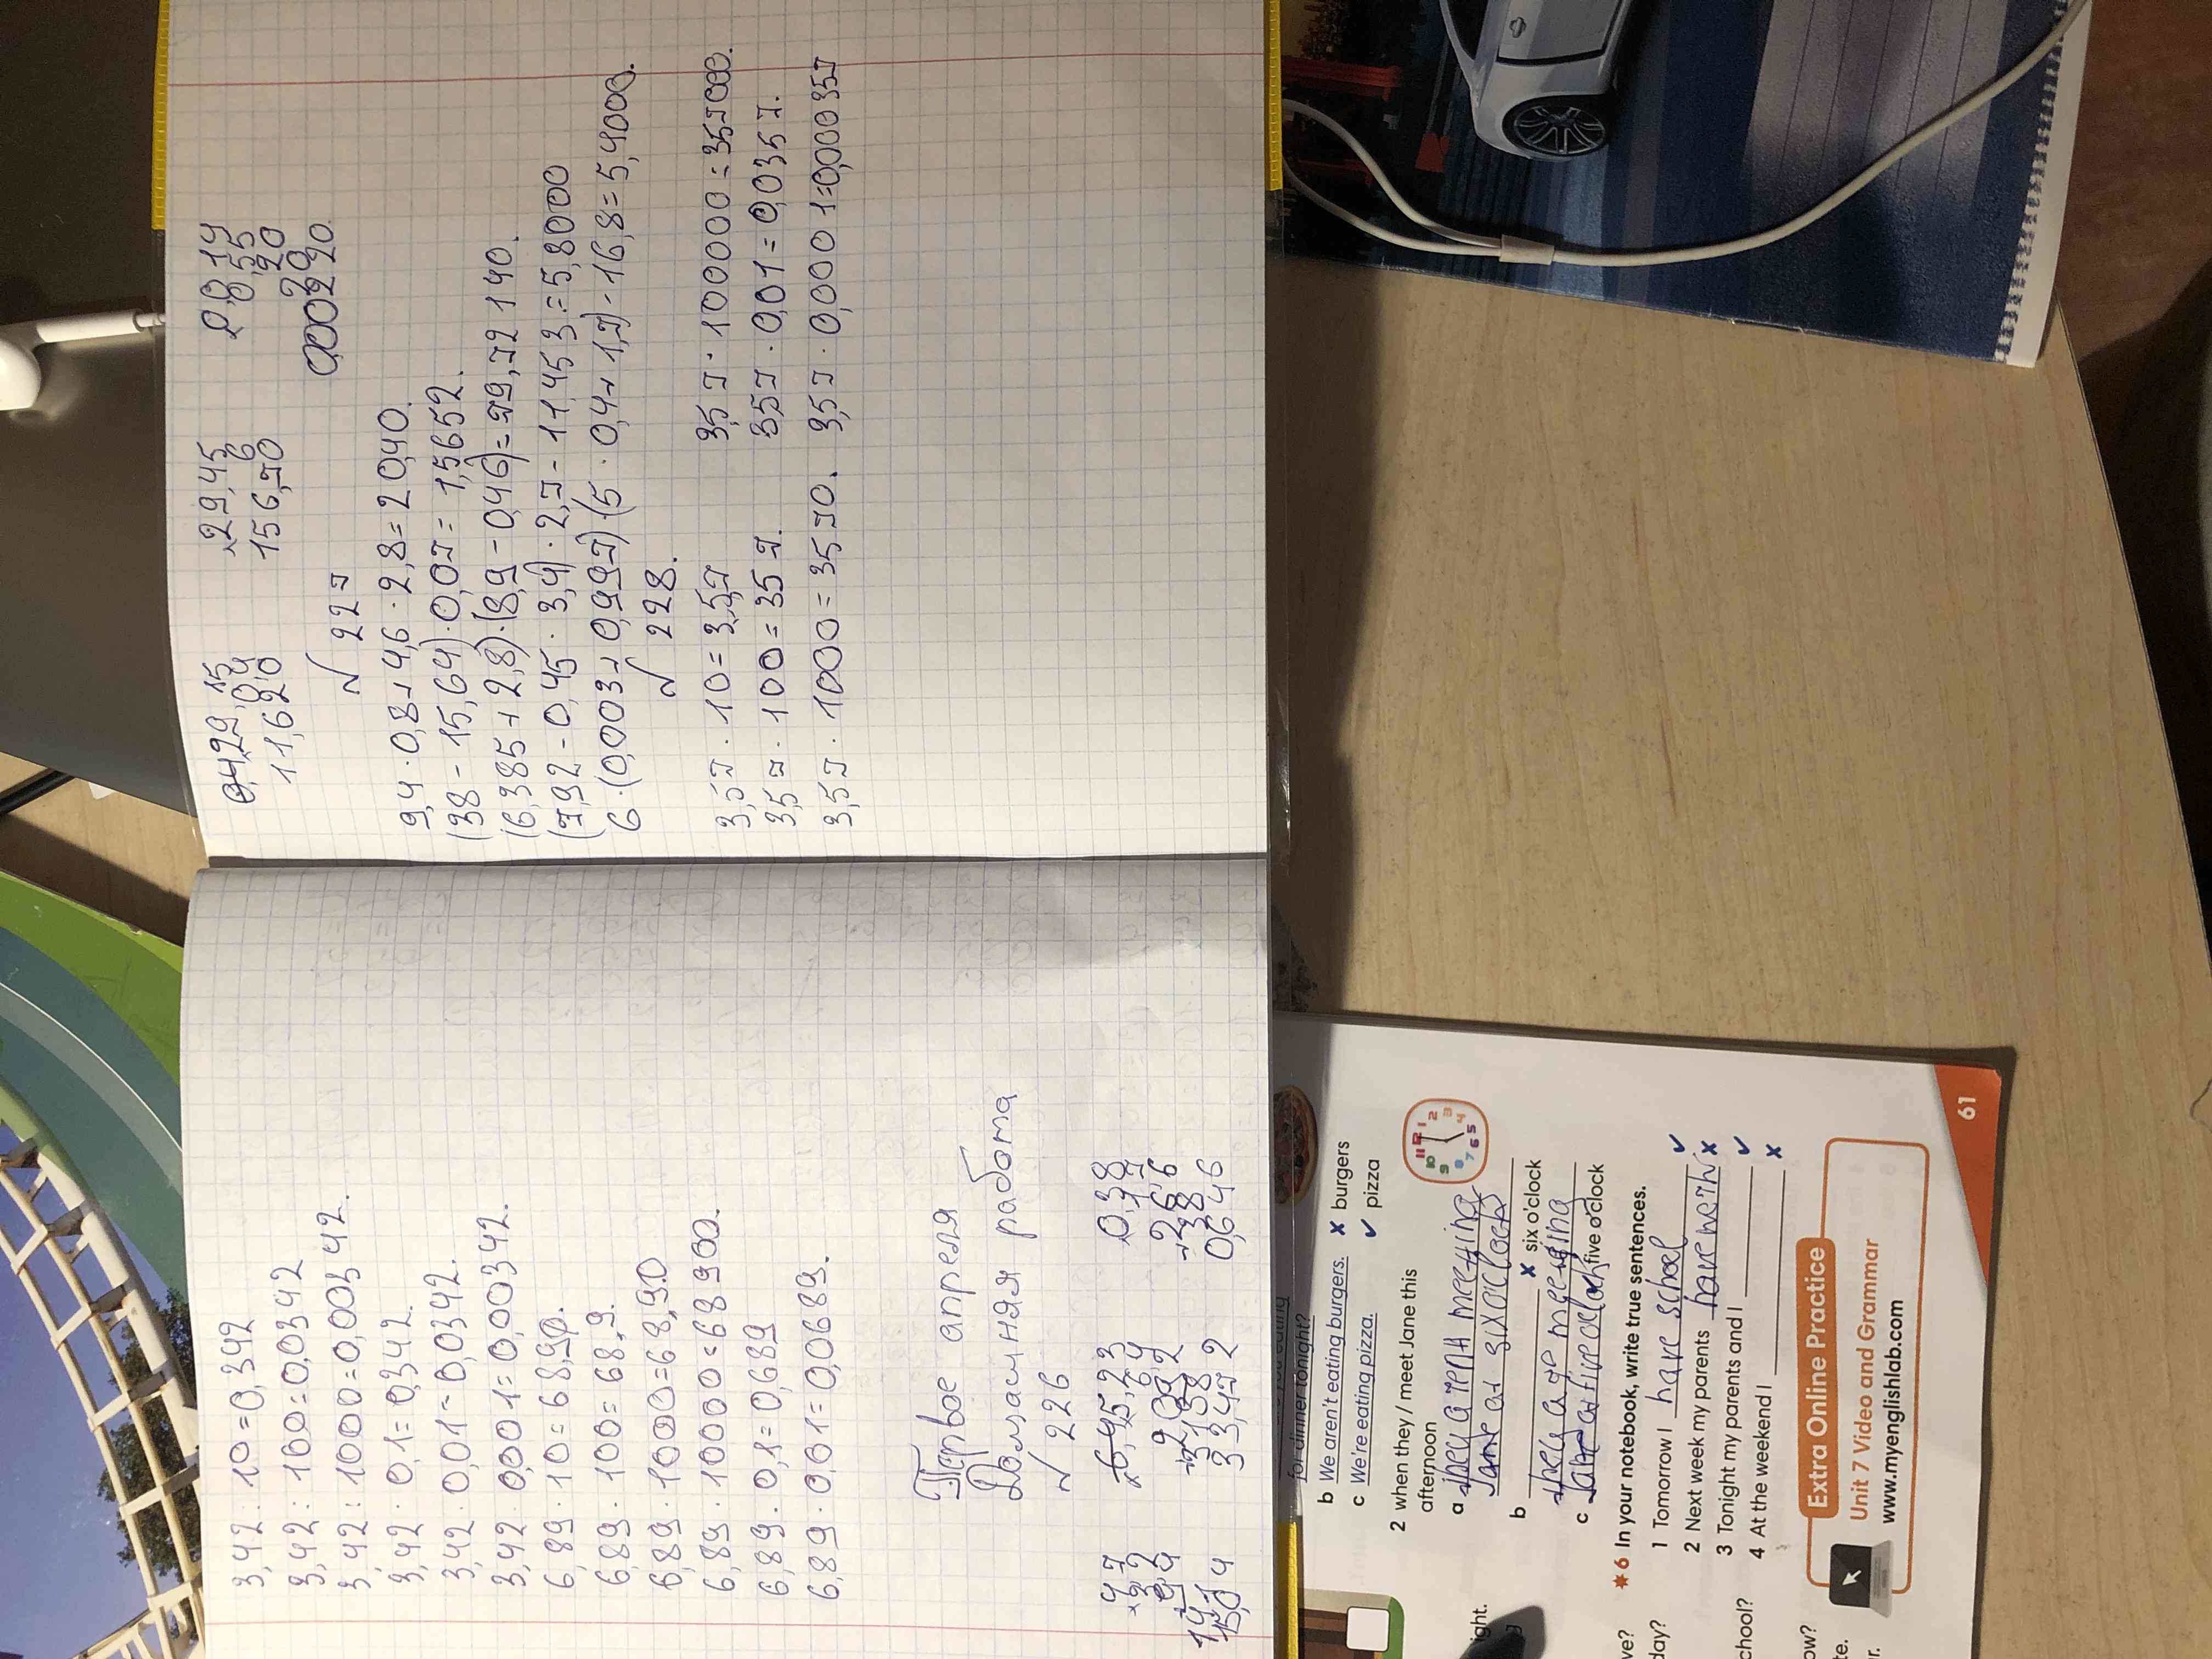 3,42 : 10 = 0,342
3,42 : 100 = 0,0342
3,42 : 1000 = 0,00342.
3,42 · 0,1 = 0,342.
3,42 · 0,01 = 0,0342.
3,42 · 0,001 = 0,00342.
6,89 · 10 = 68,90.
6,89 · 100 = 68,9.
6,89 · 1000 = 68,90
6,89 · 10000 = 68900.
6,89 · 0,1 = 0,689
6,89 · 0,01 = 0,0689.
Первое апреля
Домашняя работа
№ 226
0,38
17
266
38
0,646
33,472
15,04
29,45
6
156,70
11,620
0,55
№ 227
9,4 · 0,8 + 4,6 · 2,8 = 20,40.
(38 - 15,64) · 0,07 = 1,5652.
(6,385 + 2,8) · (8,9 - 0,46) = 79,72140.
(7,92 - 0,45 · 3,4) · 2,7 - 11,453 = 5,8000
6 · (0,003 + 0,997) · (5 · 0,4 + 1,7) - 16,8 = 5,4000.
№ 228.
3,57 · 10 = 35,7
3,57 · 100000 = 357000.
3,57 · 100 = 357.
3,57 · 0,01 = 0,0357.
3,57 · 1000 = 3570.
3,57 · 0,0001 = 0,000357
for dinner tonight?
b We aren't eating burgers. ✗ burgers
c We're eating pizza. ✓ pizza
2 when they / meet Jane this
afternoon
a they arent meeting
Jane at six oiclock
b ✗ six o'clock
meeting
c five o'clock
6 In your notebook, write true sentences.
1 Tomorrow I have school ✓
2 Next week my parents ✗
3 Tonight my parents and I ✓
4 At the weekend I ✗
Extra Online Practice
Unit 7 Video and Grammar
www.myenglishlab.com
61
ight.
ve?
day?
chool?
ow?
te.
r.